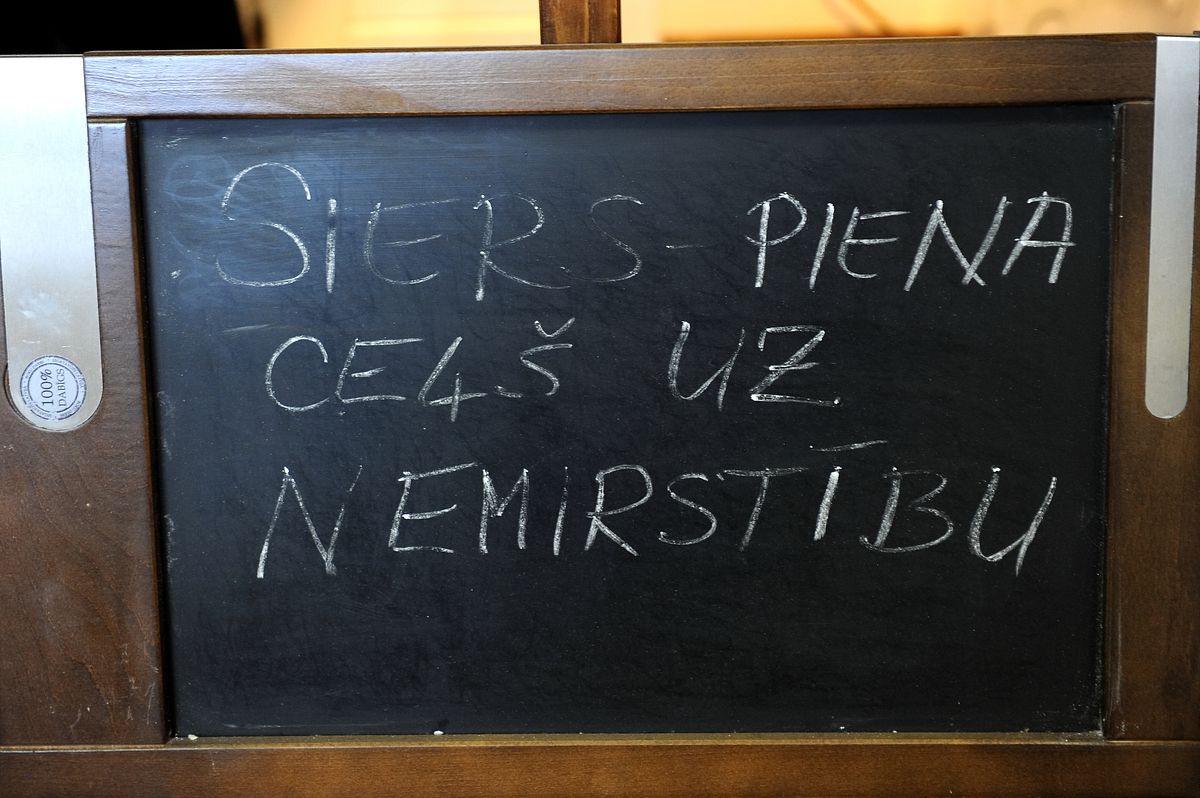 SIERS - PIENA
CEĻŠ UZ
NEMIRSTĪBU
100%
DABĪGS